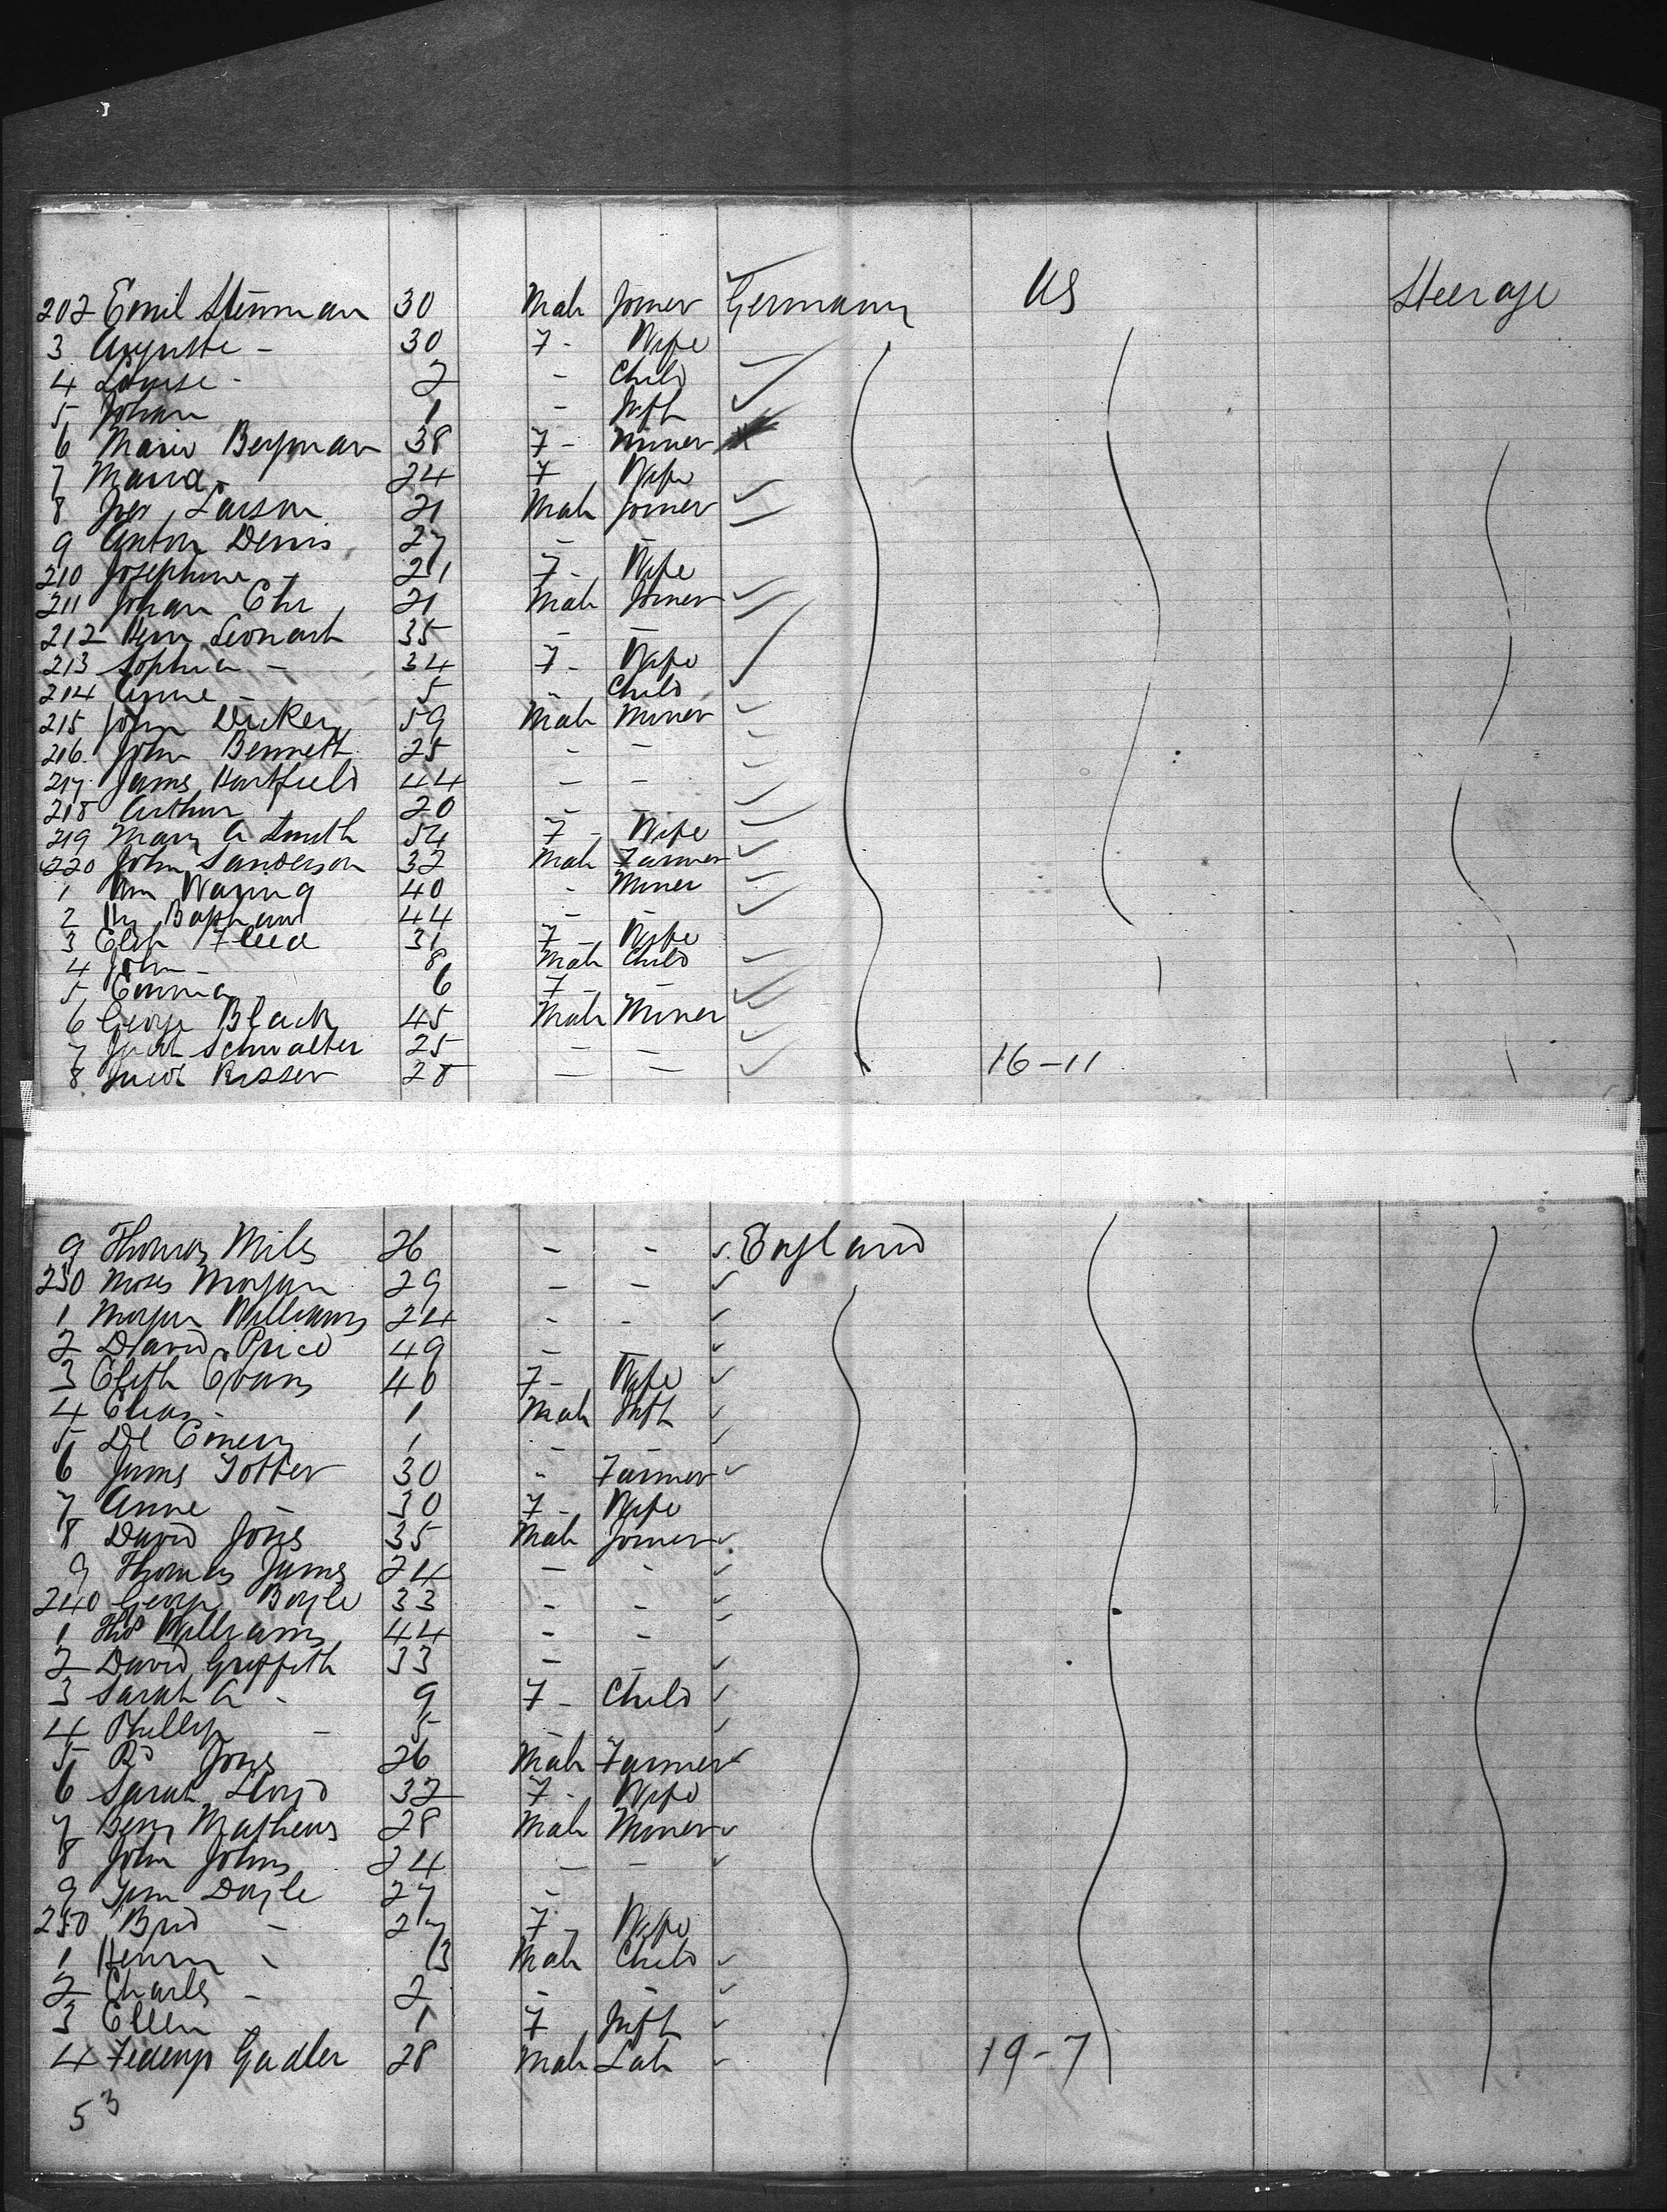 202 Emil Stenman 30 Male Joiner Germany US Steerage
3 Auguste - 30 F - Wife
4 Louise - 2 - Child
5 Johan 1 - Inft
6 Mario Bergman 38 F - Miner
7 Maria - 24 F Wife
8 Larson 21 Male Joiner
9 Anton Denis 27 - -
210 Josephine - 21 F - Wife
211 Johan Chr 21 Male Joiner
212 Leonart 35 - -
213 Sophia - 34 F - Wife
214 Anne - 5 " Child
215 John Dicker 59 Male Miner
216 John Bennett 25 - -
217 James Hartfield 44 - -
218 Arthur 20 - -
219 Mary A Smith 54 F - Wife
220 John Sanderson 32 Male Farmer
1 Wm Waring 40 - Miner
2 44 - -
3 31 F - Wife
4 John - 8 Male Child
5 Emma 6 F - -
6 George Black 45 Male Miner
7 Schwalter 25 - -
8 Risser 28 - - 16-11
9 Thomas Miles 26 - - England
230 Moses Morgan 29 - -
1 Morgan Williams 24 - -
2 David Price 49 - -
3 Elizth Evans 40 F - Wife
4 Elias - 1 Male Inft
5 Emery 1 - -
6 James Potter 30 " Farmer
7 Anne - 30 F - Wife
8 David Jones 35 Male Joiner
9 Thomas James 24 - -
240 George Boyle 33 - -
1 Thos Williams 44 - -
2 David Griffith 33 - -
3 Sarah A - 9 F - Child
4 Phillip - 5 - -
5 Jones 26 Male Farmer
6 Sarah Lloyd 32 F - Wife
7 Benj Mathews 28 Male Miner
8 John Johns 24 - -
9 Doyle 27 -
250 Brid - 27 F - Wife
1 Henry - 3 Male Child
2 Charles - 2 - -
3 Ellen 1 F Inft
4 Gadler 28 Male Lab 19-7
53